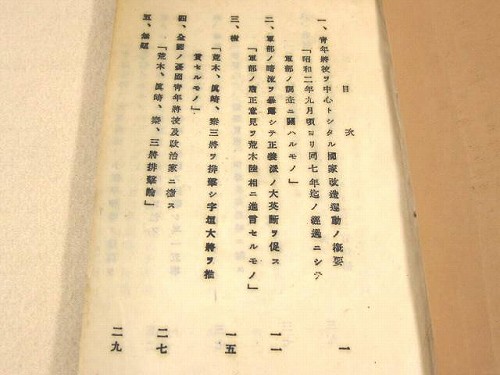 目次
一、青年將校ヲ中心トシタル國家改造運動ノ概要 一
「昭和二年九月頃ヨリ同七年迄ノ經過ニシテ
軍部ノ調査ニ關ハルモノ」
二、軍部ノ暗流ヲ暴露シテ正義派ノ大英斷ヲ促ス 一一
「軍部ノ肅正意見ヲ荒木陸相ニ進言セルモノ」
三、檄 一五
「荒木、眞崎、秦三將ヲ排撃シ宇垣大將ヲ推
賞セルモノ」
四、全國ノ憂國青年將校及政治家ニ檄ス 二七
「荒木、眞崎、秦、三將排撃論」
五、無題 二九